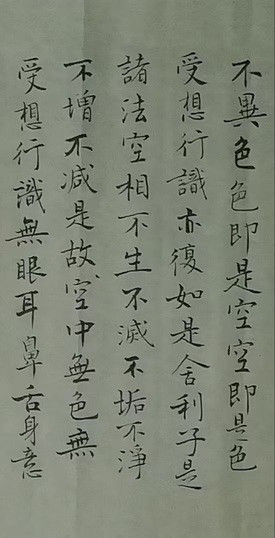 不異色色即是空空即是色
受想行識亦復如是舍利子是
諸法空相不生不滅不垢不淨
不增不減是故空中無色無
受想行識無眼耳鼻舌身意